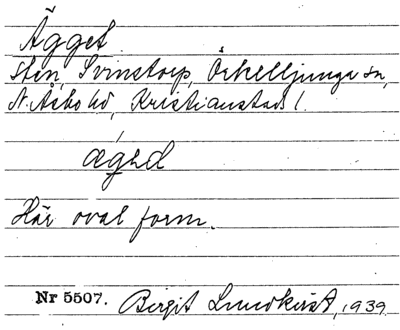 Ägget
Sten, Svinstorp, Örkelljunga sn,
N. Åsbo hd, Kristianstads l.
Har oval form.
Nr 5507. Birgit Lundkvist, 1939